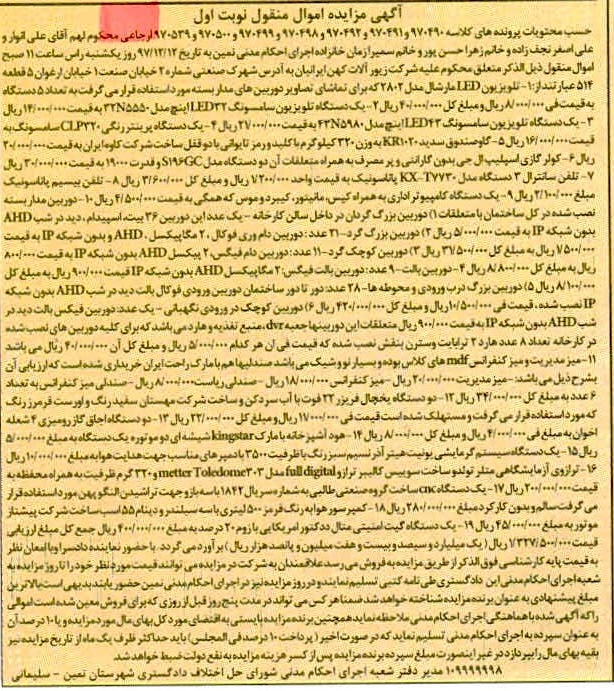 آگهی مزایده اموال منقول نوبت اول
حسب محتویات پرونده های کلاسه ۹۷۰۴۹۰ و ۹۷۰۴۹۱ و ۹۷۰۴۹۲ و ۹۷۰۴۹۸ و ۹۷۰۴۹۹ و ۹۷۰۵۰۰ و ۹۷۰۵۳۹ ارجاعی محکوم لهم آقای علی انوار و
علی اصغر نجف زاده و خانم زهرا حسن پور و خانم سمیرا زمان خانزاده اجرای احکام مدنی نمین به تاریخ ۹۷/۱۲/۱۲ روز یکشنبه راس ساعت ۱۱ صبح
اموال منقول ذیل الذکر متعلق محکوم علیه شرکت زیور آلات کهن ایرانیان به آدرس شهرک صنعتی شماره ۲ خیابان صنعت ۱ خیابان ارغوان ۵ قطعه
۵۱۴ عبارتند از: ۱- تلویزیون LED مارشال مدل 2802 که برای تماشای تصاویر دوربین های مدار بسته مورد استفاده قرار می گرفت به تعداد ۵ دستگاه
به قیمت فی ۸/۰۰۰/۰۰۰ ریال و مبلغ کل ۴۰/۰۰۰/۰۰۰ ریال ۲- یک دستگاه تلویزیون سامسونگ LED۳۲ اینچ مدل 32N5550 به قیمت ۱۴/۰۰۰/۰۰۰ ریال
۳- یک دستگاه تلویزیون سامسونگ LED۴۳ اینچ مدل 43N5980 به قیمت ۲۷/۰۰۰/۰۰۰ ریال ۴- یک دستگاه پرینتر رنگی CLP320 سامسونگ به
قیمت ۱۶/۰۰۰/۰۰۰ ریال ۵- گاوصندوق سدید KR1020 به وزن ۳۲۰ کیلوگرم با کلید و رمز تایوانی با دو قفل ساخت شرکت کاوه ایران به قیمت ۲۰/۰۰۰/۰۰۰
ریال ۶- کولر گازی اسپلیت ال جی بدون گارانتی و پر مصرف به همراه متعلقات آن دو دستگاه مدل S196GC و قدرت ۱۹۰۰۰ به قیمت ۳۰/۰۰۰/۰۰۰ ریال
۷- تلفن سانترال ۳ دستگاه مدل KX-T7730 پاناسونیک به قیمت واحد ۱/۲۰۰/۰۰۰ ریال و مبلغ کل ۳/۶۰۰/۰۰۰ ریال ۸- تلفن بیسیم پاناسونیک
مبلغ ۲/۱۰۰/۰۰۰ ریال ۹- یک دستگاه کامپیوتر اداری به همراه کیس، مانیتور، کیبرد و موس که همگی به قیمت ۴/۵۰۰/۰۰۰ ریال ۱۰- دوربین مدار بسته
نصب شده در کل ساختمان با متعلقات ۱) دوربین بزرگ گردان در داخل سالن کارخانه - یک عدد این دوربین ۳۶ بیت، اسپیدام، دید در شب AHD
بدون شبکه IP به قیمت ۵/۰۰۰/۰۰۰ ریال ۲) دوربین بزرگ گرد-۲۱ عدد: دوربین دام وری فوکال، ۲ مگاپیکسل، AHD و بدون شبکه IP به قیمت
۷/۵۰۰/۰۰۰ ریال به مبلغ کل ۳۷/۵۰۰/۰۰۰ ریال ۳) دوربین کوچک گرد-۱۱ عدد: دوربین دام فیگس، ۲ پیکسل AHD بدون شبکه IP به قیمت ۸۰۰/۰۰۰
ریال به مبلغ کل ۸/۸۰۰/۰۰۰ ریال ۴- دوربین بالت- ۹ عدد: دوربین بالت فیگس: ۲ مگاپیکسل AHD بدون شبکه IP قیمت ۹۰۰/۰۰۰ ریال به مبلغ کل
۸/۱۰۰/۰۰۰ ریال ۵) دوربین بزرگ درب ورودی و محوطه ها- ۲۸ عدد: دور تا دور ساختمان دوربین ورودی فوکال بالت دید در شب AHD بدون شبکه
IP نصب شده، قیمت فی ۱۰/۵۰۰/۰۰۰ ریال و مبلغ کل ۴۲۰/۰۰۰/۰۰۰ ریال ۶) دوربین کوچک در ورودی نگهبانی - یک عدد: دوربین فیکس بالت دید در
شب AHD بدون شبکه IP به قیمت ۹۰۰/۰۰۰ ریال متعلقات این دوربینها جعبه dvr، منبع تغذیه و هارد می باشد که برای کلیه دوربین های نصب شده
در کارخانه تعداد ۸ عدد هارد ۲ ترابایت وسترن بنفش نصب شده که قیمت فی ان هر کدام ۵/۰۰۰/۰۰۰ ریال و مبلغ کل آن ۴۰/۰۰۰/۰۰۰ ریال می باشد
۱۱- میز مدیریت و میز کنفرانس mdf های کلاس بوده و بسیار نو و شیک می باشد صندلیها هم با مارک راحت ایران خریداری شده است که ارزیابی آن
بشرح ذیل می باشد:- میز مدیریت ۲۰/۰۰۰/۰۰۰ ریال- میز کنفرانس ۱۸/۰۰۰/۰۰۰ ریال - صندلی ریاست ۸/۰۰۰/۰۰۰ ریال- صندلی میز کنفرانس به تعداد
۶ عدد به مبلغ کل ۲۴/۰۰۰/۰۰۰ ریال ۱۲- دو دستگاه یخچال فریزر ۲۲ فوت با آب سرد کن و ساخت شرکت مهستان سفید رنگ و اورست قرمز رنگ
که مورد استفاده قرار می گرفت و مستهلک شده است قیمت فی ۱۷/۰۰۰/۰۰۰ ریال و مبلغ کل ۲۲/۰۰۰/۰۰۰ ریال ۱۳- دو دستگاه اجاق گاز رومیزی ۴ شعله
اخوان به مبلغ فی ۴/۰۰۰/۰۰۰ ریال و مبلغ کل ۸/۰۰۰/۰۰۰ ریال ۱۴- هود آشپزخانه با مارک kingstar شیشه ای دو موتوره یک دستگاه به مبلغ ۵/۰۰۰/۰۰۰
ریال ۱۵- یک دستگاه سیستم گرمایشی یونیت هیتر آذر نسیم سبز رنگ با ظرفیت ۳۵۰۰ با دمپر های مناسب جهت هدایت هوا به مبلغ ۱۰/۰۰۰/۰۰۰ ریال
۱۶- ترازوی آزمایشگاهی متلر تولدو ساخت سوییس کالیبر ترازو full digital مدل metter Toledome303 و ۳۲۰ گرم ظرفیت به همراه محفظه به
قیمت ۲۰۰/۰۰۰/۰۰۰ ریال ۱۷- یک دستگاه cnc ساخت گروه صنعتی طالبی به شماره سریال ۱۸۴۲ با سه بازو جهت تراشیدن النگو پهن مورد استفاده قرار
می گرفت سالم و بدون کارکرد مبلغ ۲۸۰/۰۰۰/۰۰۰ ریال ۱۸- کمپرسور هوا به رنگ قرمز ۵۰۰ لیتری با سه سیلندر و دینام ۵۵ اسب ساخت شرکت پیشتاز
موتور به مبلغ ۴۵/۰۰۰/۰۰۰ ریال ۱۹- یک دستگاه گیت امنیتی متال ددکتور امریکایی با زوم ۲۰ درصد به مبلغ ۴۰۰/۰۰۰/۰۰۰ ریال جمع کل مبلغ ارزیابی
قیمت ۱/۳۲۷/۵۰۰/۰۰۰ ریال ( یک میلیارد و سیصد و بیست و هفت میلیون و پانصد هزار ریال ) برآورد می گردد. با حضور نماینده دادسرا و با امعان نظر
به قیمت پایه کارشناسی فوق الذکر از طریق مزایده به فروش می رسد علاقمندان به شرکت در مزایده می توانند قیمت مورد نظر خود را تا روز مزایده به
شعبه اجرای احکام مدنی این دادگستری طی نامه کتبی تسلیم نمایند و در روز مزایده نیز در اجرای احکام مدنی نمین حضور یابند بدیهی است بالاترین
مبلغ پیشنهادی به عنوان برنده مزایده شناخته خواهد شد ضمنا هر کس می تواند در مدت پنج روز قبل از روزی که برای فروش معین شده است اموالی
را که آگهی شده با هماهنگی اجرای احکام مدنی ملاحظه نماید همچنین برنده مزایده بایستی به اقتضای مورد کل بهای مال مورد مزایده و یا ۱۰ درصد آن
به عنوان سپرده به اجرای احکام مدنی تسلیم نماید که در صورت اخیر ( پرداخت ۱۰ درصد فی المجلس) باید حداکثر ظرف یک ماه از تاریخ مزایده نیز
بقیه بهای مال را بپردازد در غیر اینصورت مبلغ سپرده برنده مزایده پس از کسر هزینه مزایده به نفع دولت ضبط خواهد شد.
۱۰۹۹۹۹۹۹۸ مدیر دفتر شعبه اجرای احکام مدنی شورای حل اختلاف دادگستری شهرستان نمین - سلیمانی